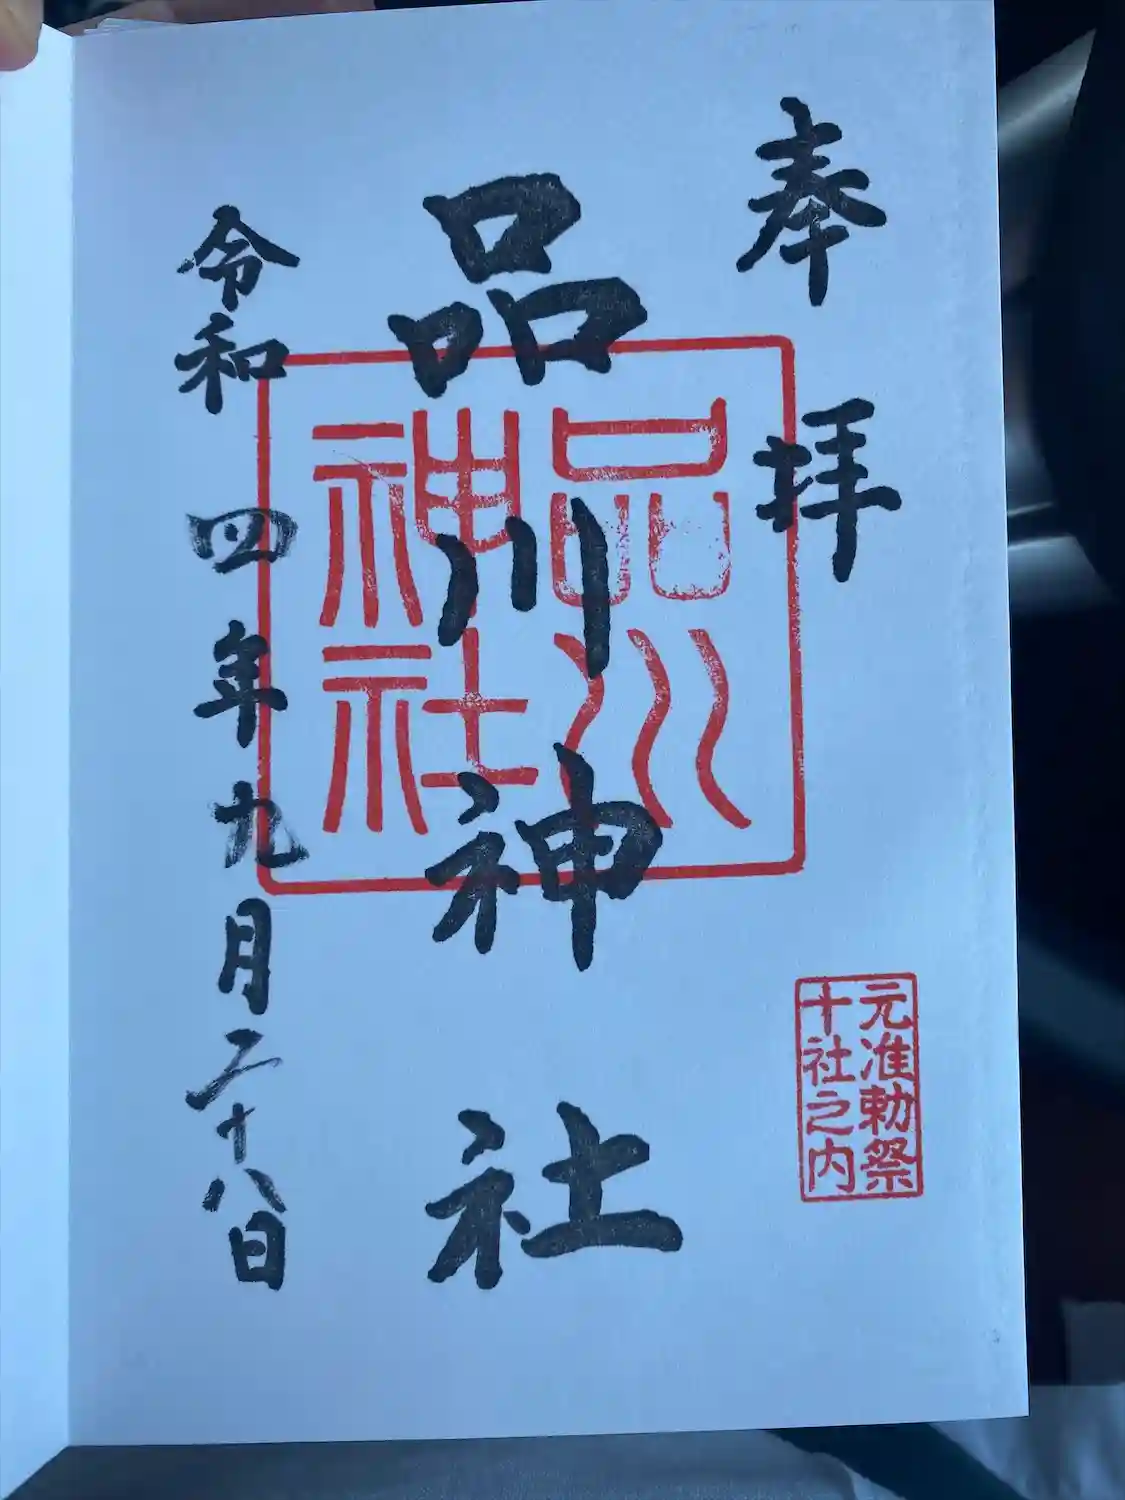 奉拝
元准勅祭
十社之内
品川神社
品川
神社
令和四年九月二十八日